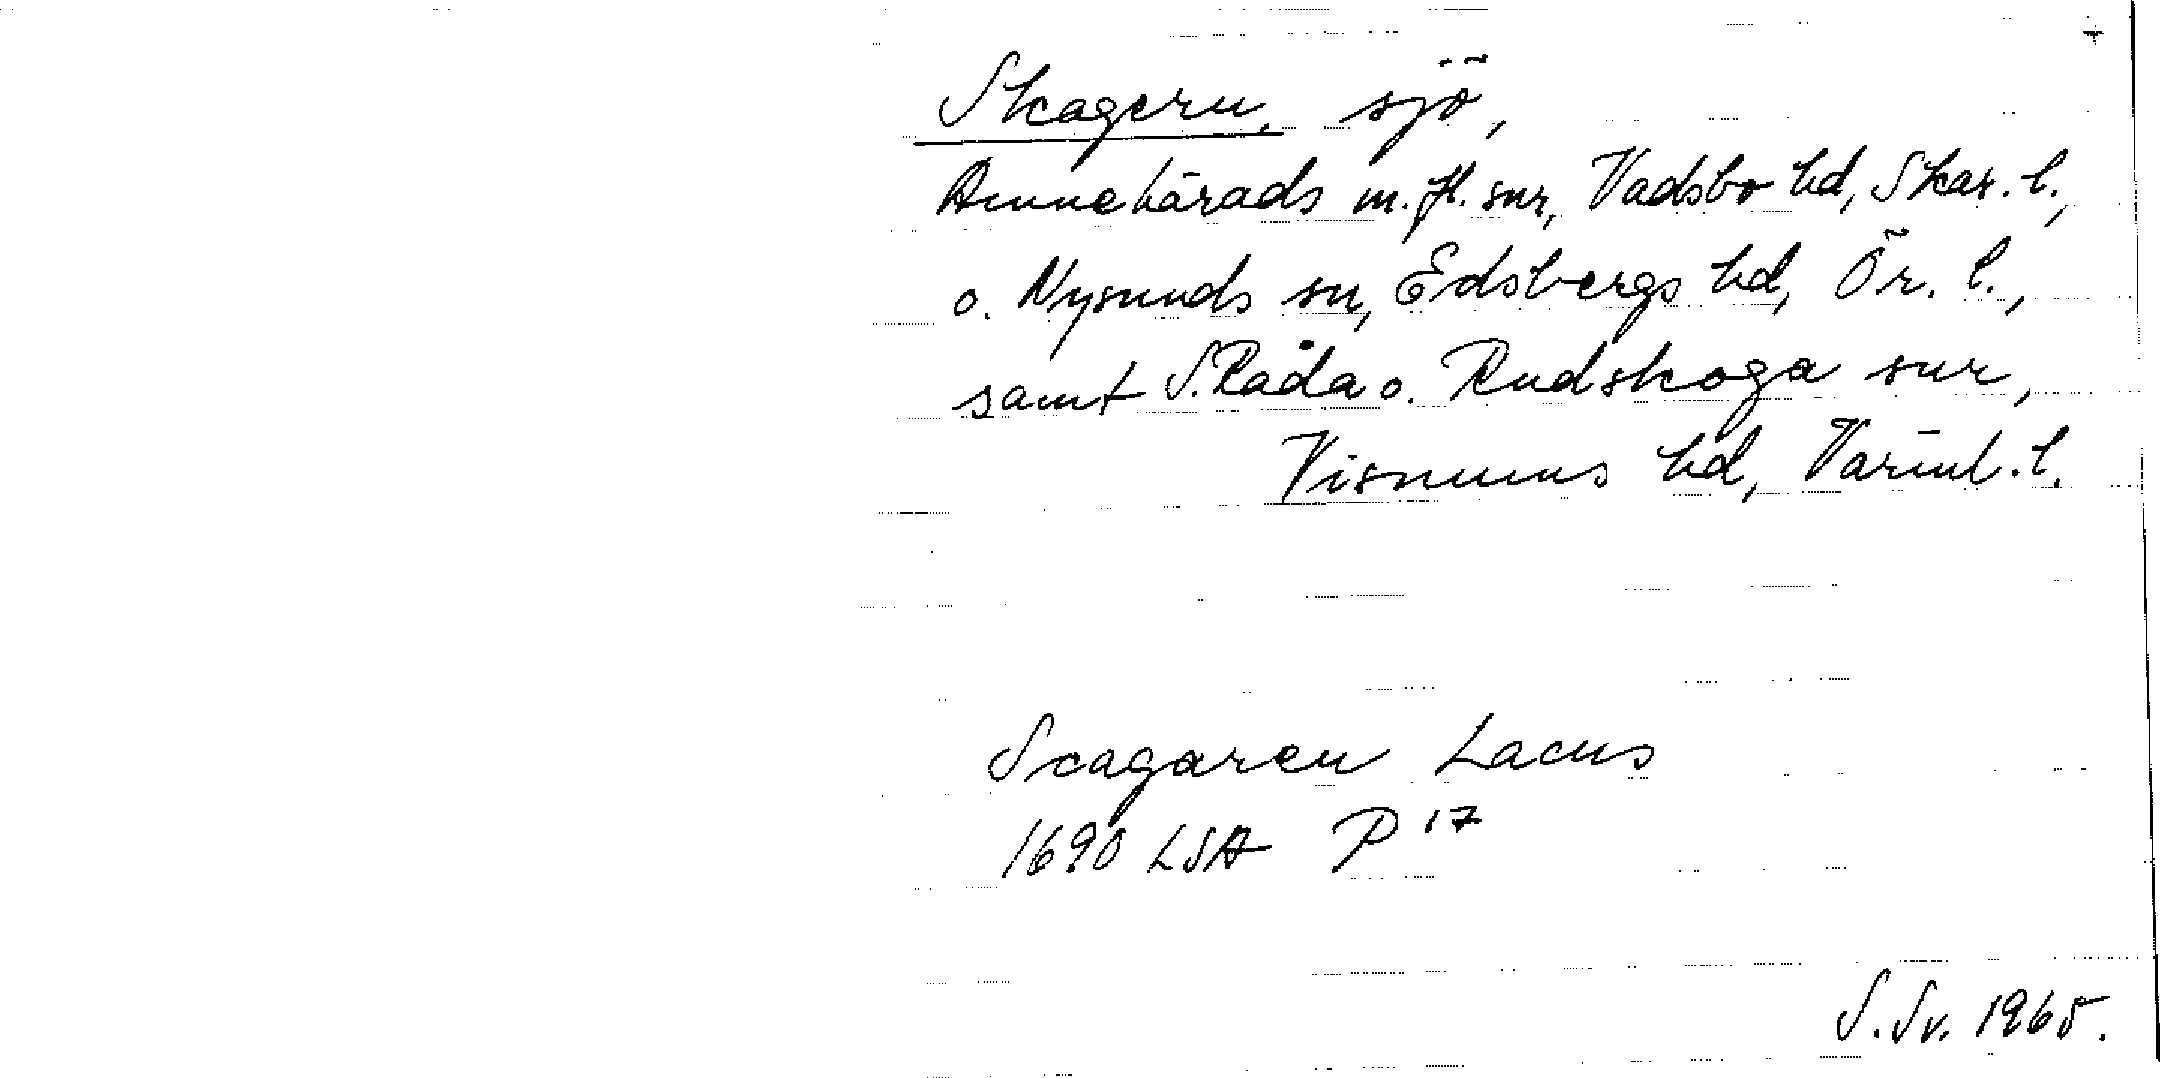 Skagern, sjö,
Amnehärads m.fl. snr, Vadsbo hd, Skar. l.,
o. Nysunds sn, Edsbergs hd, Ör. l.,
samt S. Råda o. Rudskoga snr,
Visnums hd, Värml. l.
Scagaren Lacus
1690 LSA P 17
S. Sv. 1965.